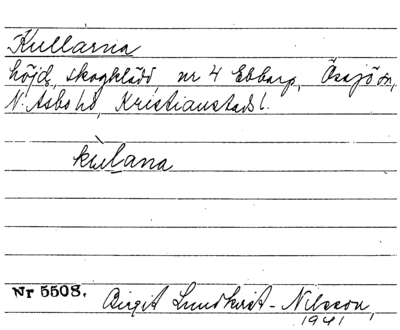 Kullarna
höjd, skogklädd, nr 4 Ebbarp, Össjö sn,
N. Åsbo hd, Kristianstads l.
kùlana
Nr 5508. Birgit Lundkvist-Nilsson,
1941